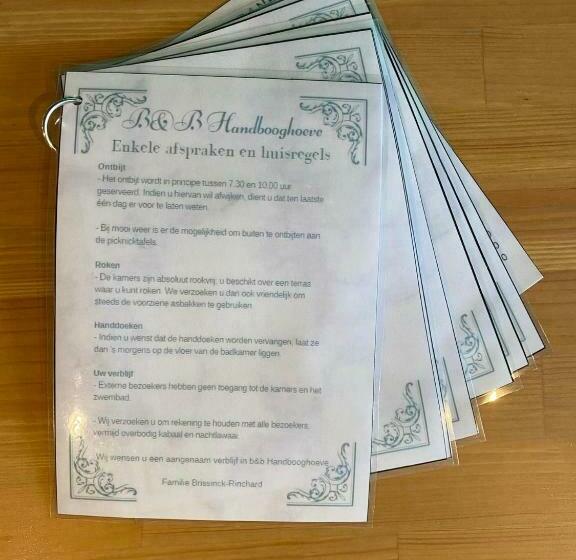 B&B Handbooghoeve
Enkele afspraken en huisregels
Ontbijt
- Het ontbijt wordt in principe tussen 7.30 en 10.00 uur
geserveerd. Indien u hiervan wil afwijken, dient u dat ten laatste
één dag er voor te laten weten.
- Bij mooi weer is er de mogelijkheid om buiten te ontbijten aan
de picknicktafels.
Roken
- De kamers zijn absoluut rookvrij, u beschikt over een terras
waar u kunt roken. We verzoeken u dan ook vriendelijk om
steeds de voorziene asbakken te gebruiken.
Handdoeken
- Indien u wenst dat de handdoeken worden vervangen, laat ze
dan 's morgens op de vloer van de badkamer liggen.
Uw verblijf
- Externe bezoekers hebben geen toegang tot de kamers en het
zwembad.
- Wij verzoeken u om rekening te houden met alle bezoekers,
vermijd overbodig kabaal en nachtlawaai.
Wij wensen u een aangenaam verblijf in b&b Handbooghoeve
Familie Brissinck-Rinchard